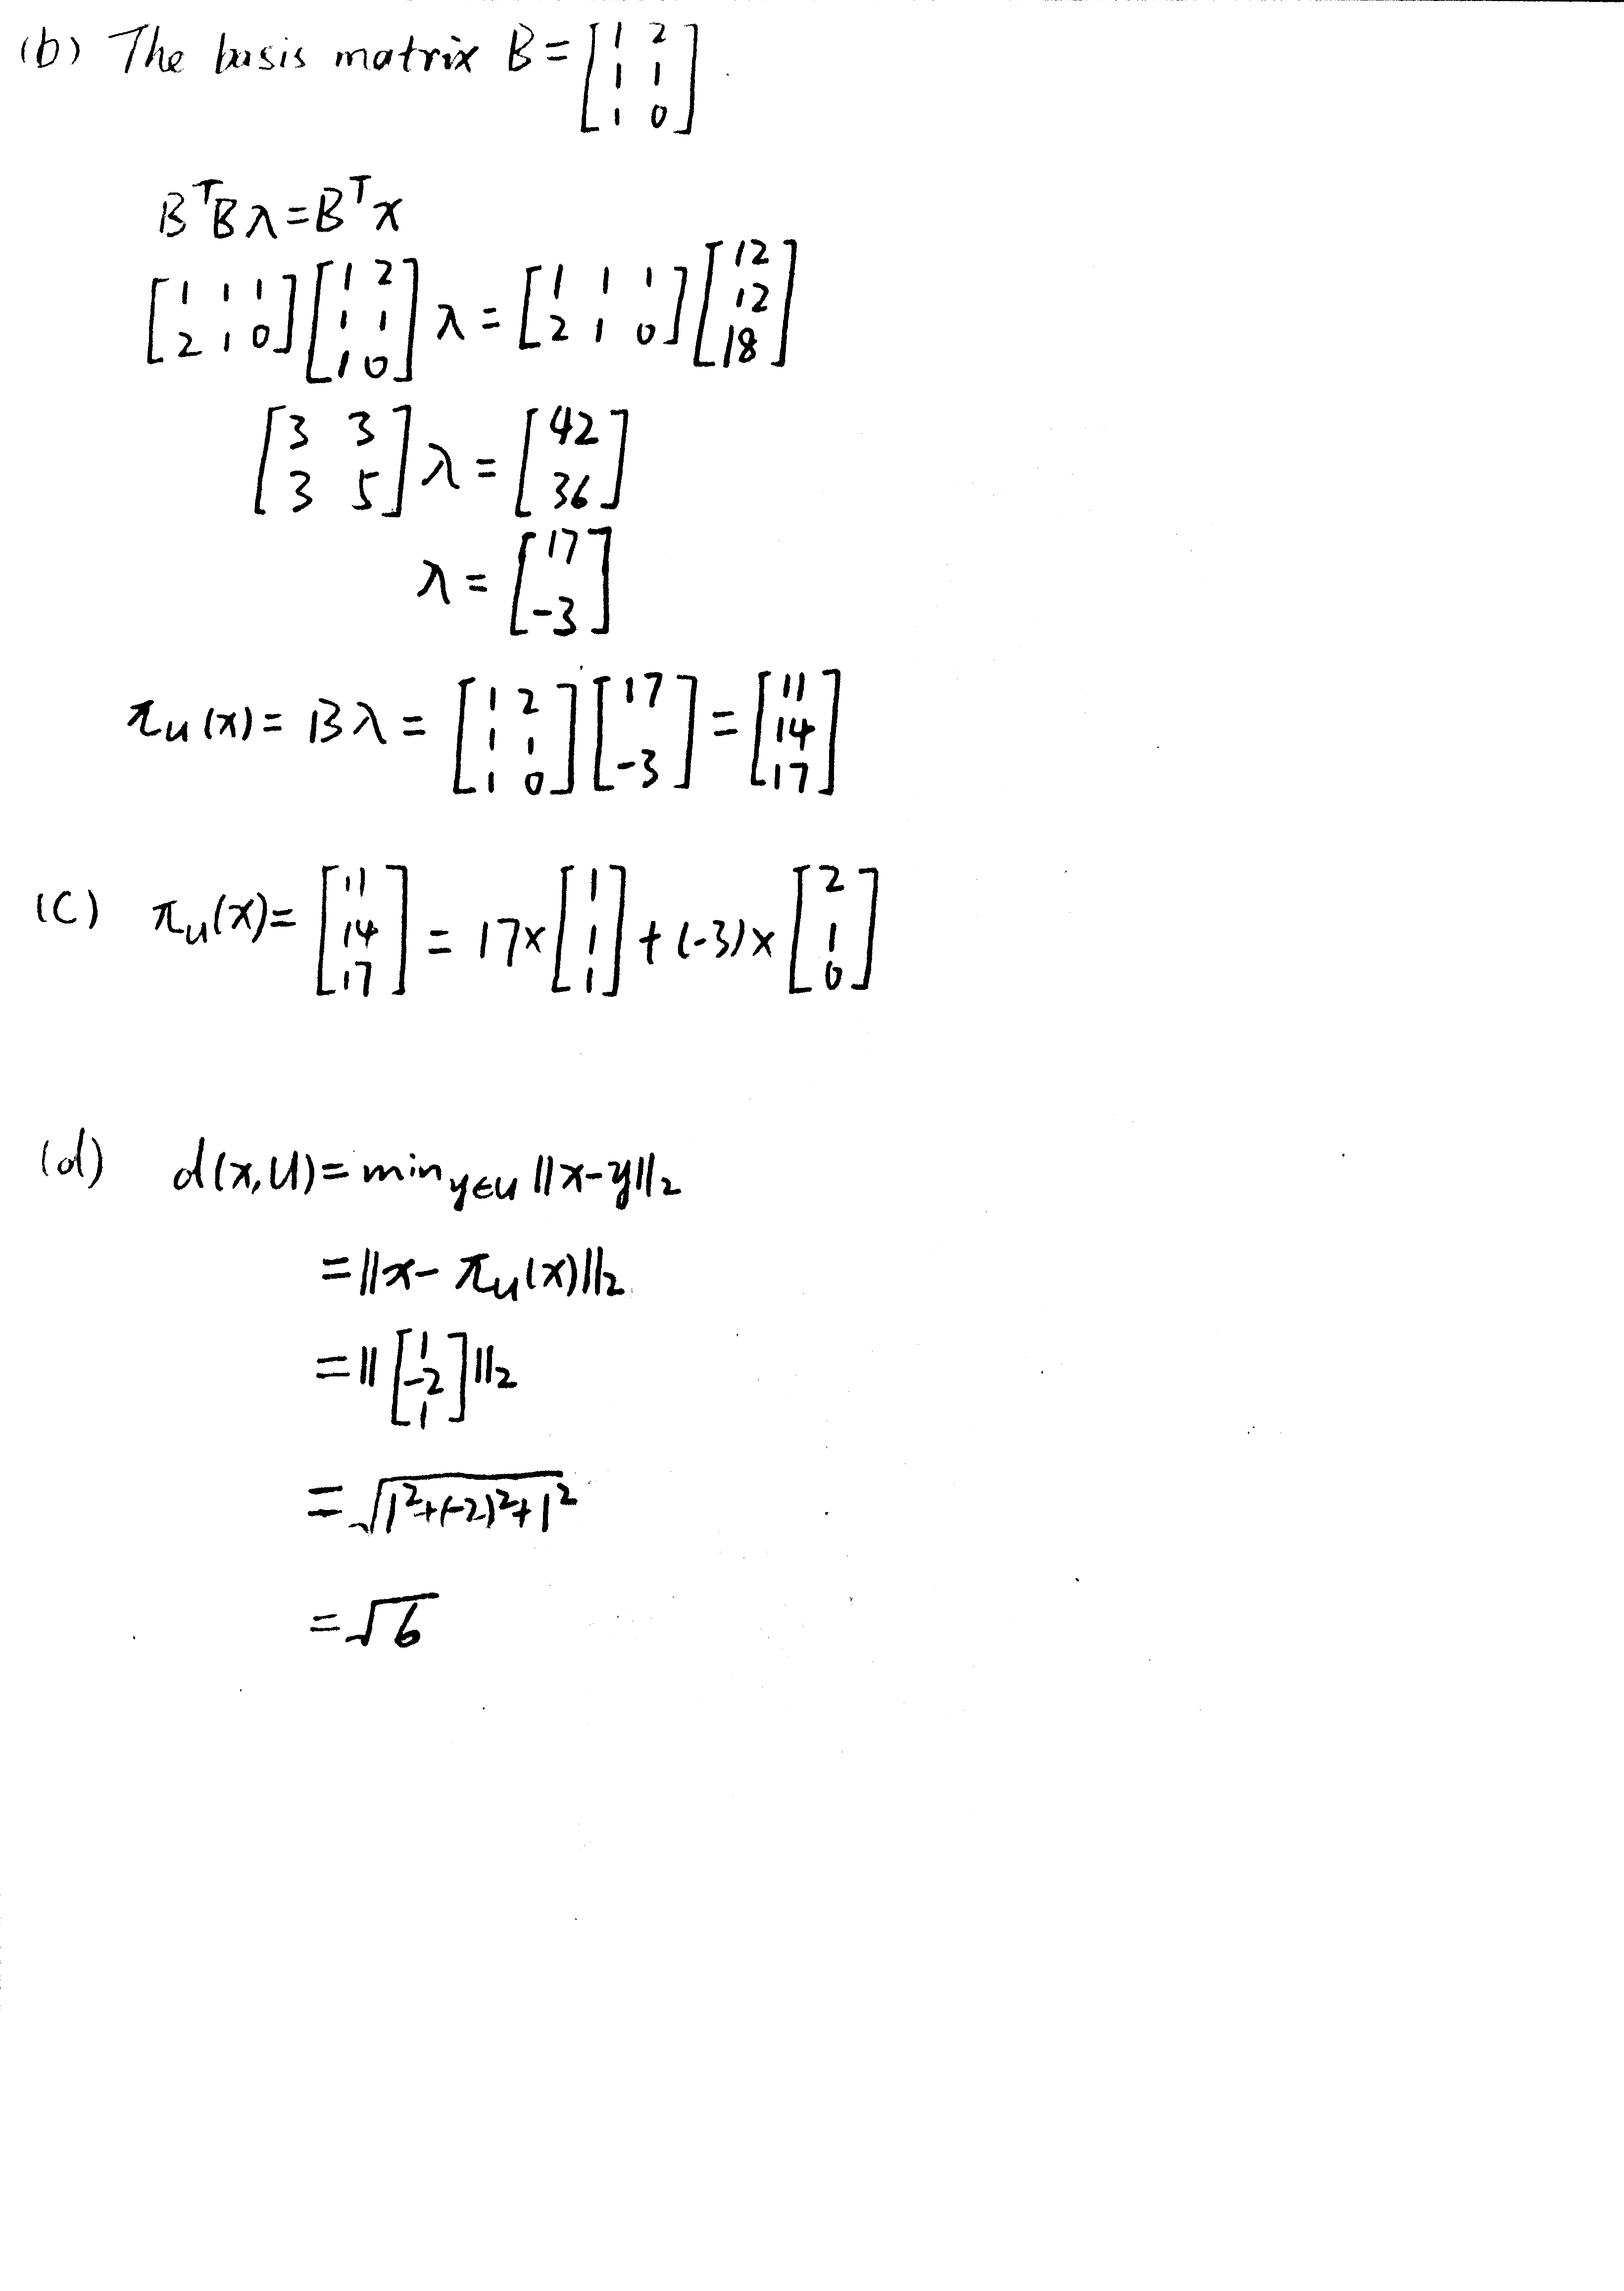 (b) The basis matrix B = [1 2; 1 1; 1 0].
BᵀBλ = Bᵀx
[1 1 1; 2 1 0] [1 2; 1 1; 1 0] λ = [1 1 1; 2 1 0] [12; 12; 18]
[3 3; 3 5] λ = [42; 36]
λ = [17; -3]
π_U(x) = Bλ = [1 2; 1 1; 1 0] [17; -3] = [11; 14; 17]
(c) π_U(x) = [11; 14; 17] = 17 × [1; 1; 1] + (-3) × [2; 1; 0]
(d) d(x, U) = min_{y∈U} ||x-y||₂
= ||x - π_U(x)||₂
= || [1; -2; 1] ||₂
= √(1²+(-2)²+1²)
= √6